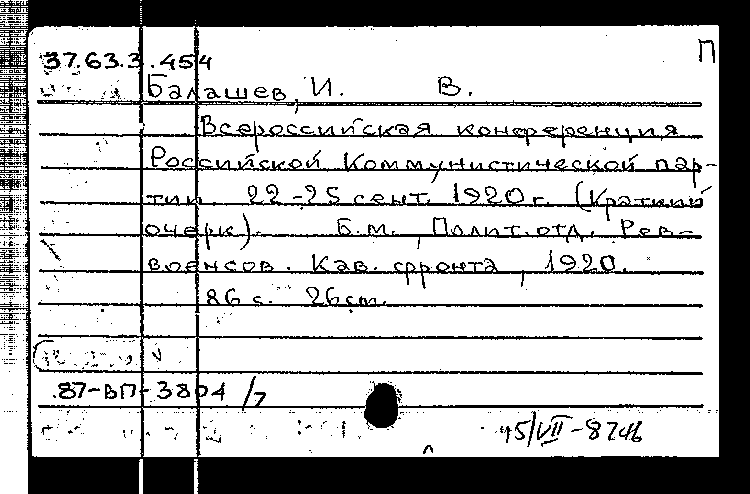 П
37.63.3.454
Балашев, И. В.
Всероссийская конференция
Российской Коммунистической пар-
тии. 22-25 сент. 1920 г. (Краткий
очерк). Б.м., Полит.отд. Рев-
военсов. Кав. фронта, 1920.
26 см.
87-ВП-3804/7
45/VII-8746